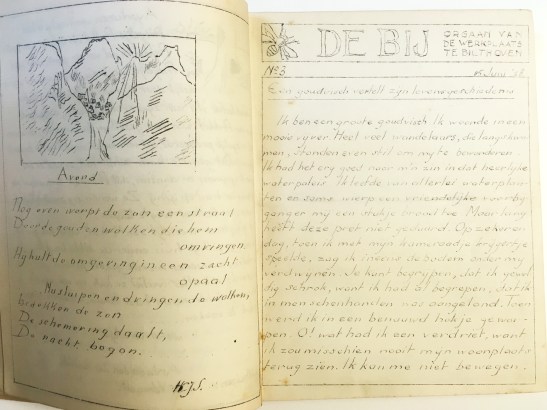 Avond
Nog even werpt de zon een straal
Door de gouden wolken die hem
omringen.
Hij hult de omgeving in een zacht
opaal
Nu sluipen en dringen de wolken,
bedekken de zon
De schemering daalt,
De nacht begon...
H.J.S.
DE BIJ
ORGAAN VAN
DE WERKPLAATS
TE BILTHOVEN
No 3.
Een goudvisch vertelt zijn levensgeschiedenis
Ik ben een groote goudvisch. Ik woonde in een
mooie vijver. Heel veel wandelaars, die langs kwa-
men, stonden even stil om mij te bewonderen.
Ik had het erg goed naar m'n zin in dat heerlijke
waterpaleis. Ik leefde van allerlei waterplan-
ten en soms wierp een vriendelijke voorbij-
ganger mij een stukje brood toe. Maar lang
heeft deze pret niet geduurd. Op zekeren
dag, toen ik met mijn kameraadje krijgertje
speelde, zag ik ineens de bodem onder mij
verdwijnen. Je kunt begrijpen, dat ik gewel-
dig schrok, want ik had al begrepen, dat ik
in menschenhanden was aangeland. Toen
werd ik in een benauwd hokje gewor-
pen. O! wat had ik een verdriet, want
ik zou misschien nooit mijn woonplaats
terug zien. Ik kon me niet bewegen.